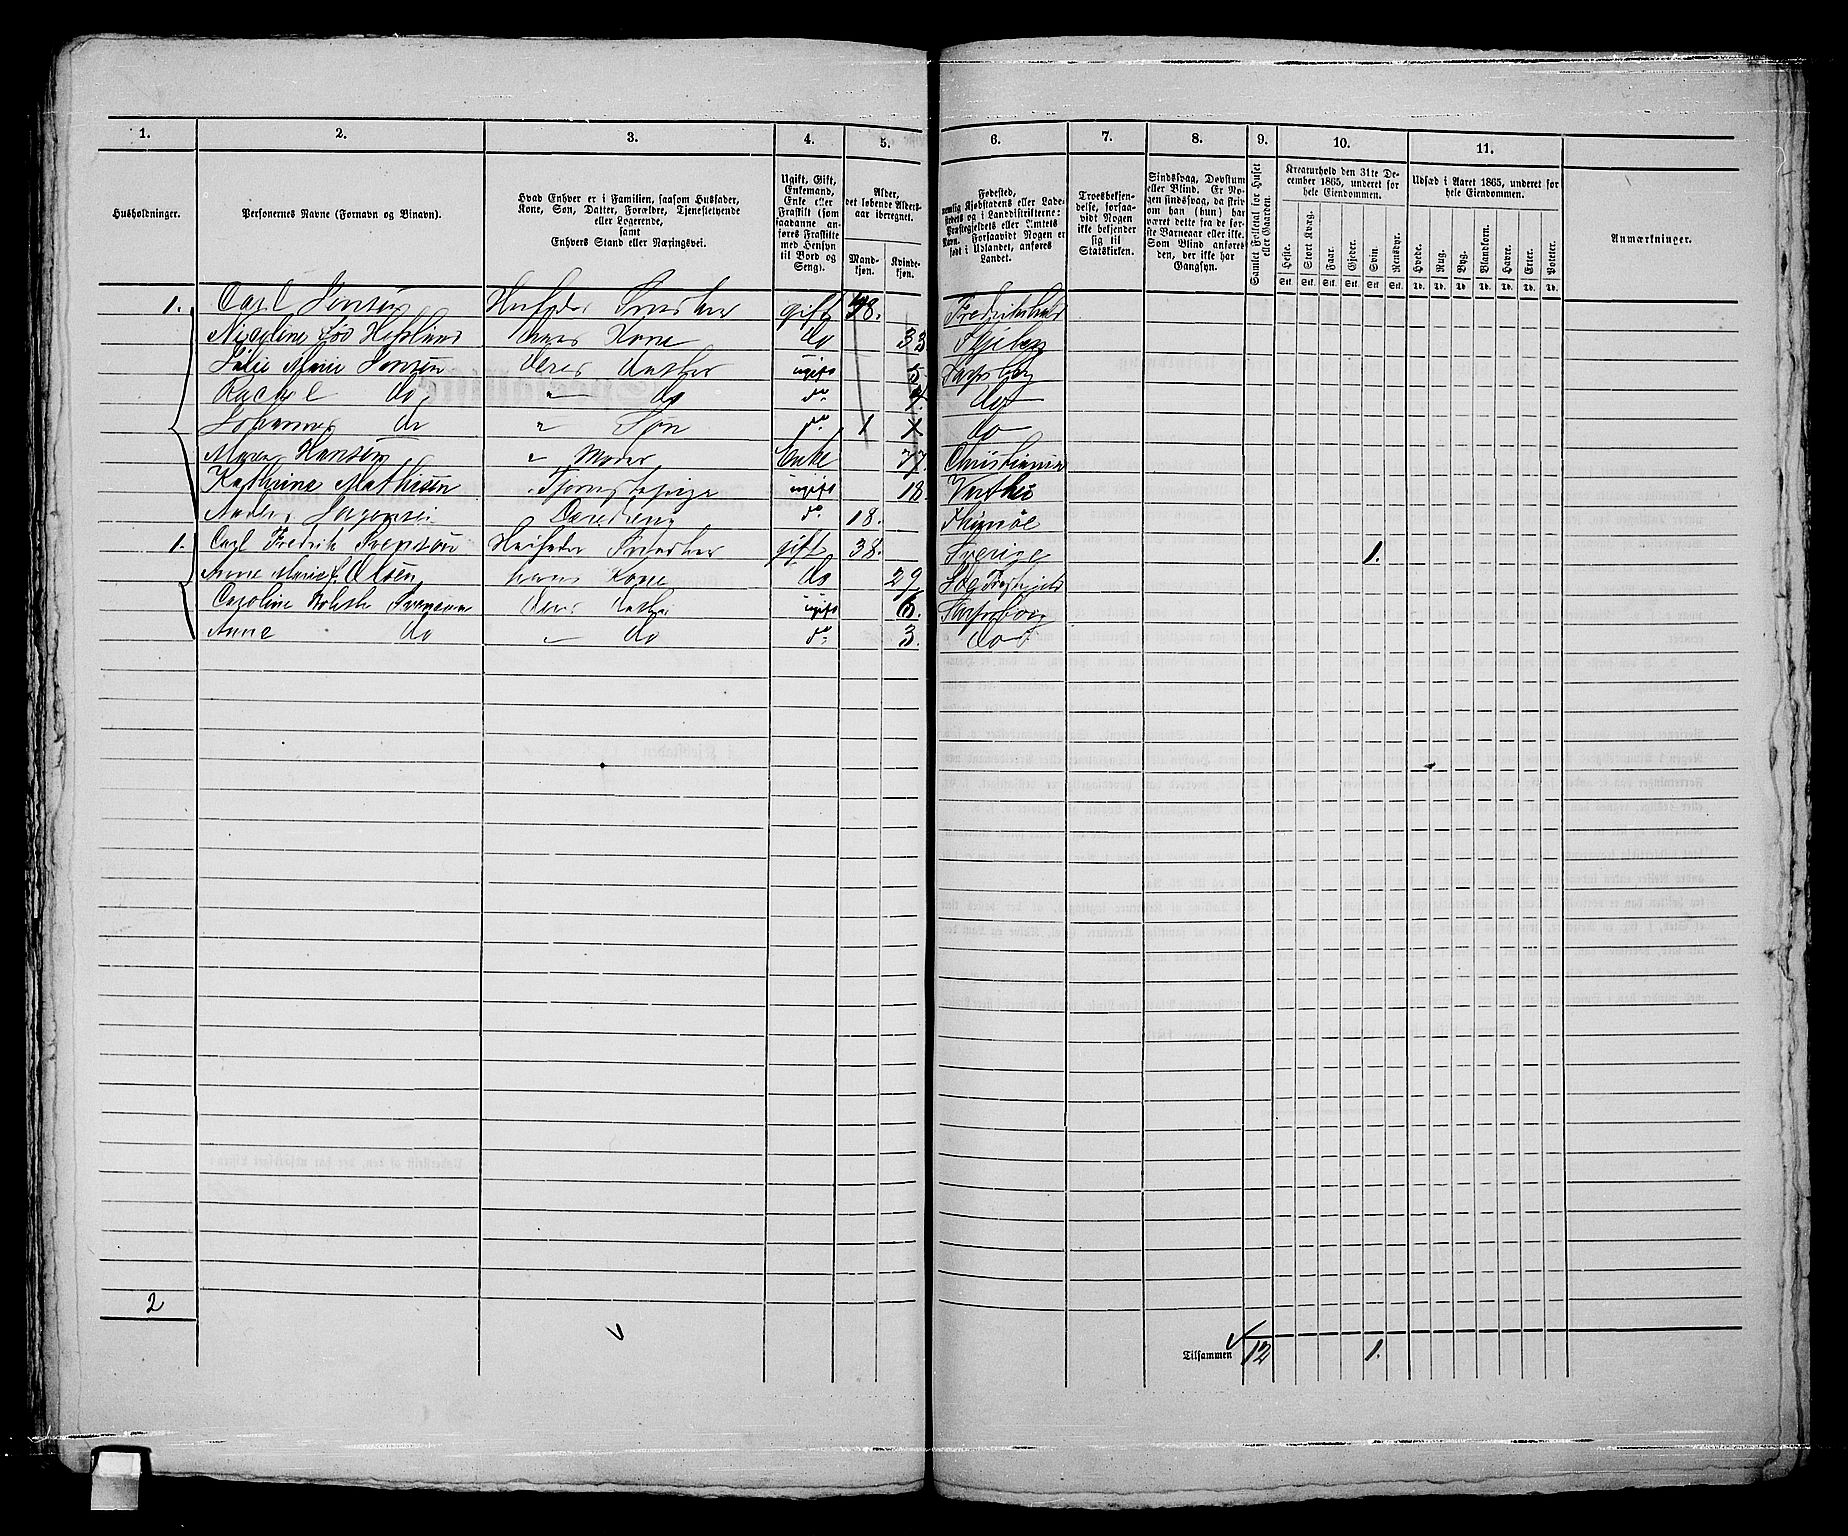 1. 2. 3. 4. 5. 6. 7. 8. 9. 10. 11.
Husholdninger.
Personernes Navne (Fornavn og Binavn).
Hvad Enhver er i Familien, saasom Husfader, Kone, Søn, Datter, Forældre, Tjenestetyende eller Logerende, samt Enhvers Stand eller Næringsvei.
Ugift, Gift, Enkemand, Enke eller Fraskilt (som saadanne anføres Fraskilte med Hensyn til Bord og Seng).
Alder, det løbende Alders-aar iberegnet.
Mand-kjøn. Kvinde-kjøn.
Fødested, nemlig Kjøbstadens eller Ladestedets og i Landdistrikterne: Præstegjeldets eller Amtets Navn. Forsaavidt Nogen er født i Udlandet, anføres Landet.
Troesbekjendelse, forsaavidt Nogen ikke bekjender sig til Statskirken.
Sindssvag, Døvstum eller Blind. Er Nogen sindssvag, da skriv om han (hun) har været dette fra de første Barneaar eller ikke. Som Blind anføres den, der ikke har Gangsyn.
Samlet Folketal for Huset eller Gaarden.
Kreaturhold den 31te December 1865, underet for hele Eiendommen.
Heste. Stort Kvæg. Faar. Gjeder. Svin. Rensdyr.
Stk. Stk. Stk. Stk. Stk. Stk.
Udsæd i Aaret 1865, underet for hele Eiendommen.
Hvede. Rug. Byg. Blandkorn. Havre. Erter. Poteter.
Td. Td. Td. Td. Td. Td. Td.
Anmærkninger.
1. Carl Jensen Husfader Snedker gift 38. Fredrikshald
Nicoline hans Kone do 33 Skjeberg
Julie Marie Jensen deres Datter ugift 5. Sarpsborg
Rachel do " do do do
Johannes do " Søn do 1 do
Maren Hansen " Moder Enke 77. Christiania
Kathrine Mathisen Tjenestepige ugift 18
Anders do 18.
1. Carl Fredrik Svensøn Husfader Snedker gift 38. Sverige 1.
Anne Marie Olsen hans Kone do 29
Caroline Svensen deres Datter ugift 6. Sarpsborg
Anne do " do do 3. do
2
Tilsammen 12 1.